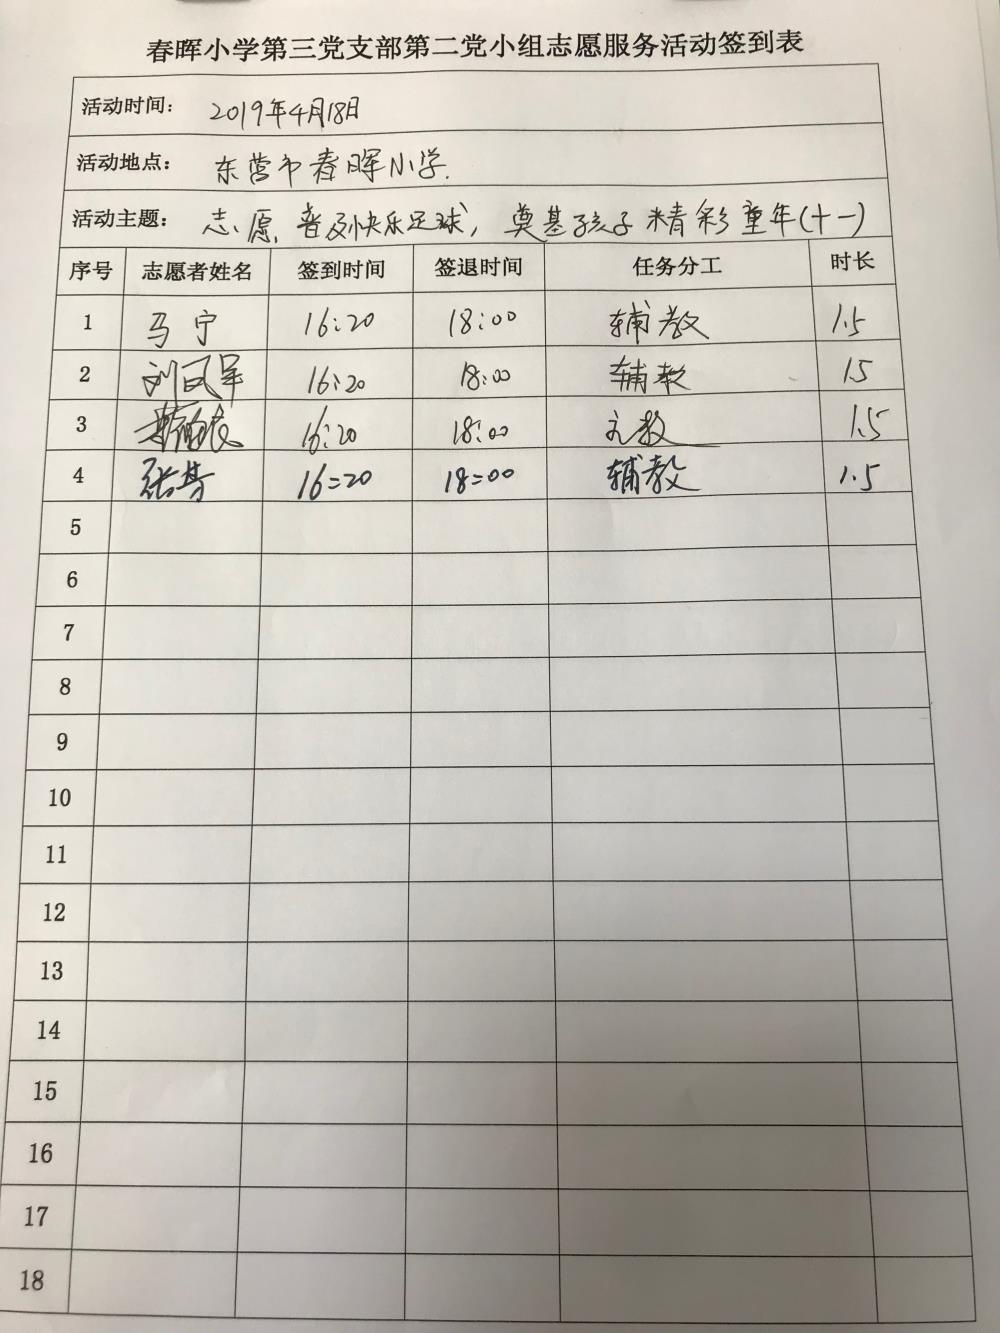 春晖小学第三党支部第二党小组志愿服务活动签到表
活动时间： 2019年4月18日
活动地点： 东营市春晖小学.
活动主题： 志愿普及快乐足球，奠基孩子精彩童年(十一)
序号 志愿者姓名 签到时间 签退时间 任务分工 时长
1 马宁 16:20 18:00 辅教 1.5
2 16:20 18:00 辅教 1.5
3 16:20 18:00 主教 1.5
4 张芳 16:20 18:00 辅教 1.5
5
6
7
8
9
10
11
12
13
14
15
16
17
18